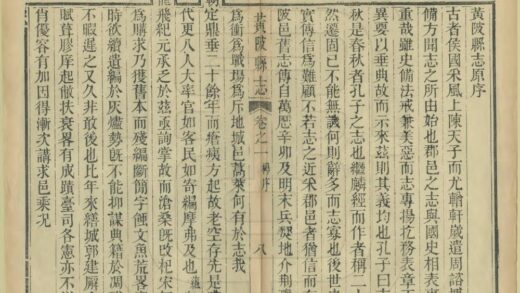 黃陂縣志原序
古者侯國采風上陳天子而尤輶軒歲遣周諮
備方聞志之所由始也郡邑之志與國史相表
重哉雖史備法戒兼美惡而志專揚扢務表章不
異要以垂典故而示來茲則其義均也孔子曰
秋是春秋者孔子之志也繼麟經而作者稱二十
然遷固已不能無譏何則辭多而志寡也後世史
實傳信為難顧不若志之近采郡邑者猶信而
陂邑舊志傳自萬曆辛卯及明末兵燹地介荆
黃陂縣志 卷之一 舊序 八
為衝為戰場為斥地城邑蒿萊何有於志我
朝定鼎垂二十餘年而瘡痍方起故老空存先是
代更八人大率官如客民如寄編摩弗及也蘊
龍飛紀元承之於茲亟詢掌故而滄桑既改杞宋
為購求乃獲舊本而殘編斷簡字蝕文魚荒畧
時欲續遺編於灰燼勢既不能抑謀典籍於凋
不暇遲之又久非敢後也比年來繕城郭建廨
賦葺膠庠起敝扶衰畧有成蹟臺司各憲亦不
肖優容有加因得漸次講求邑乘況